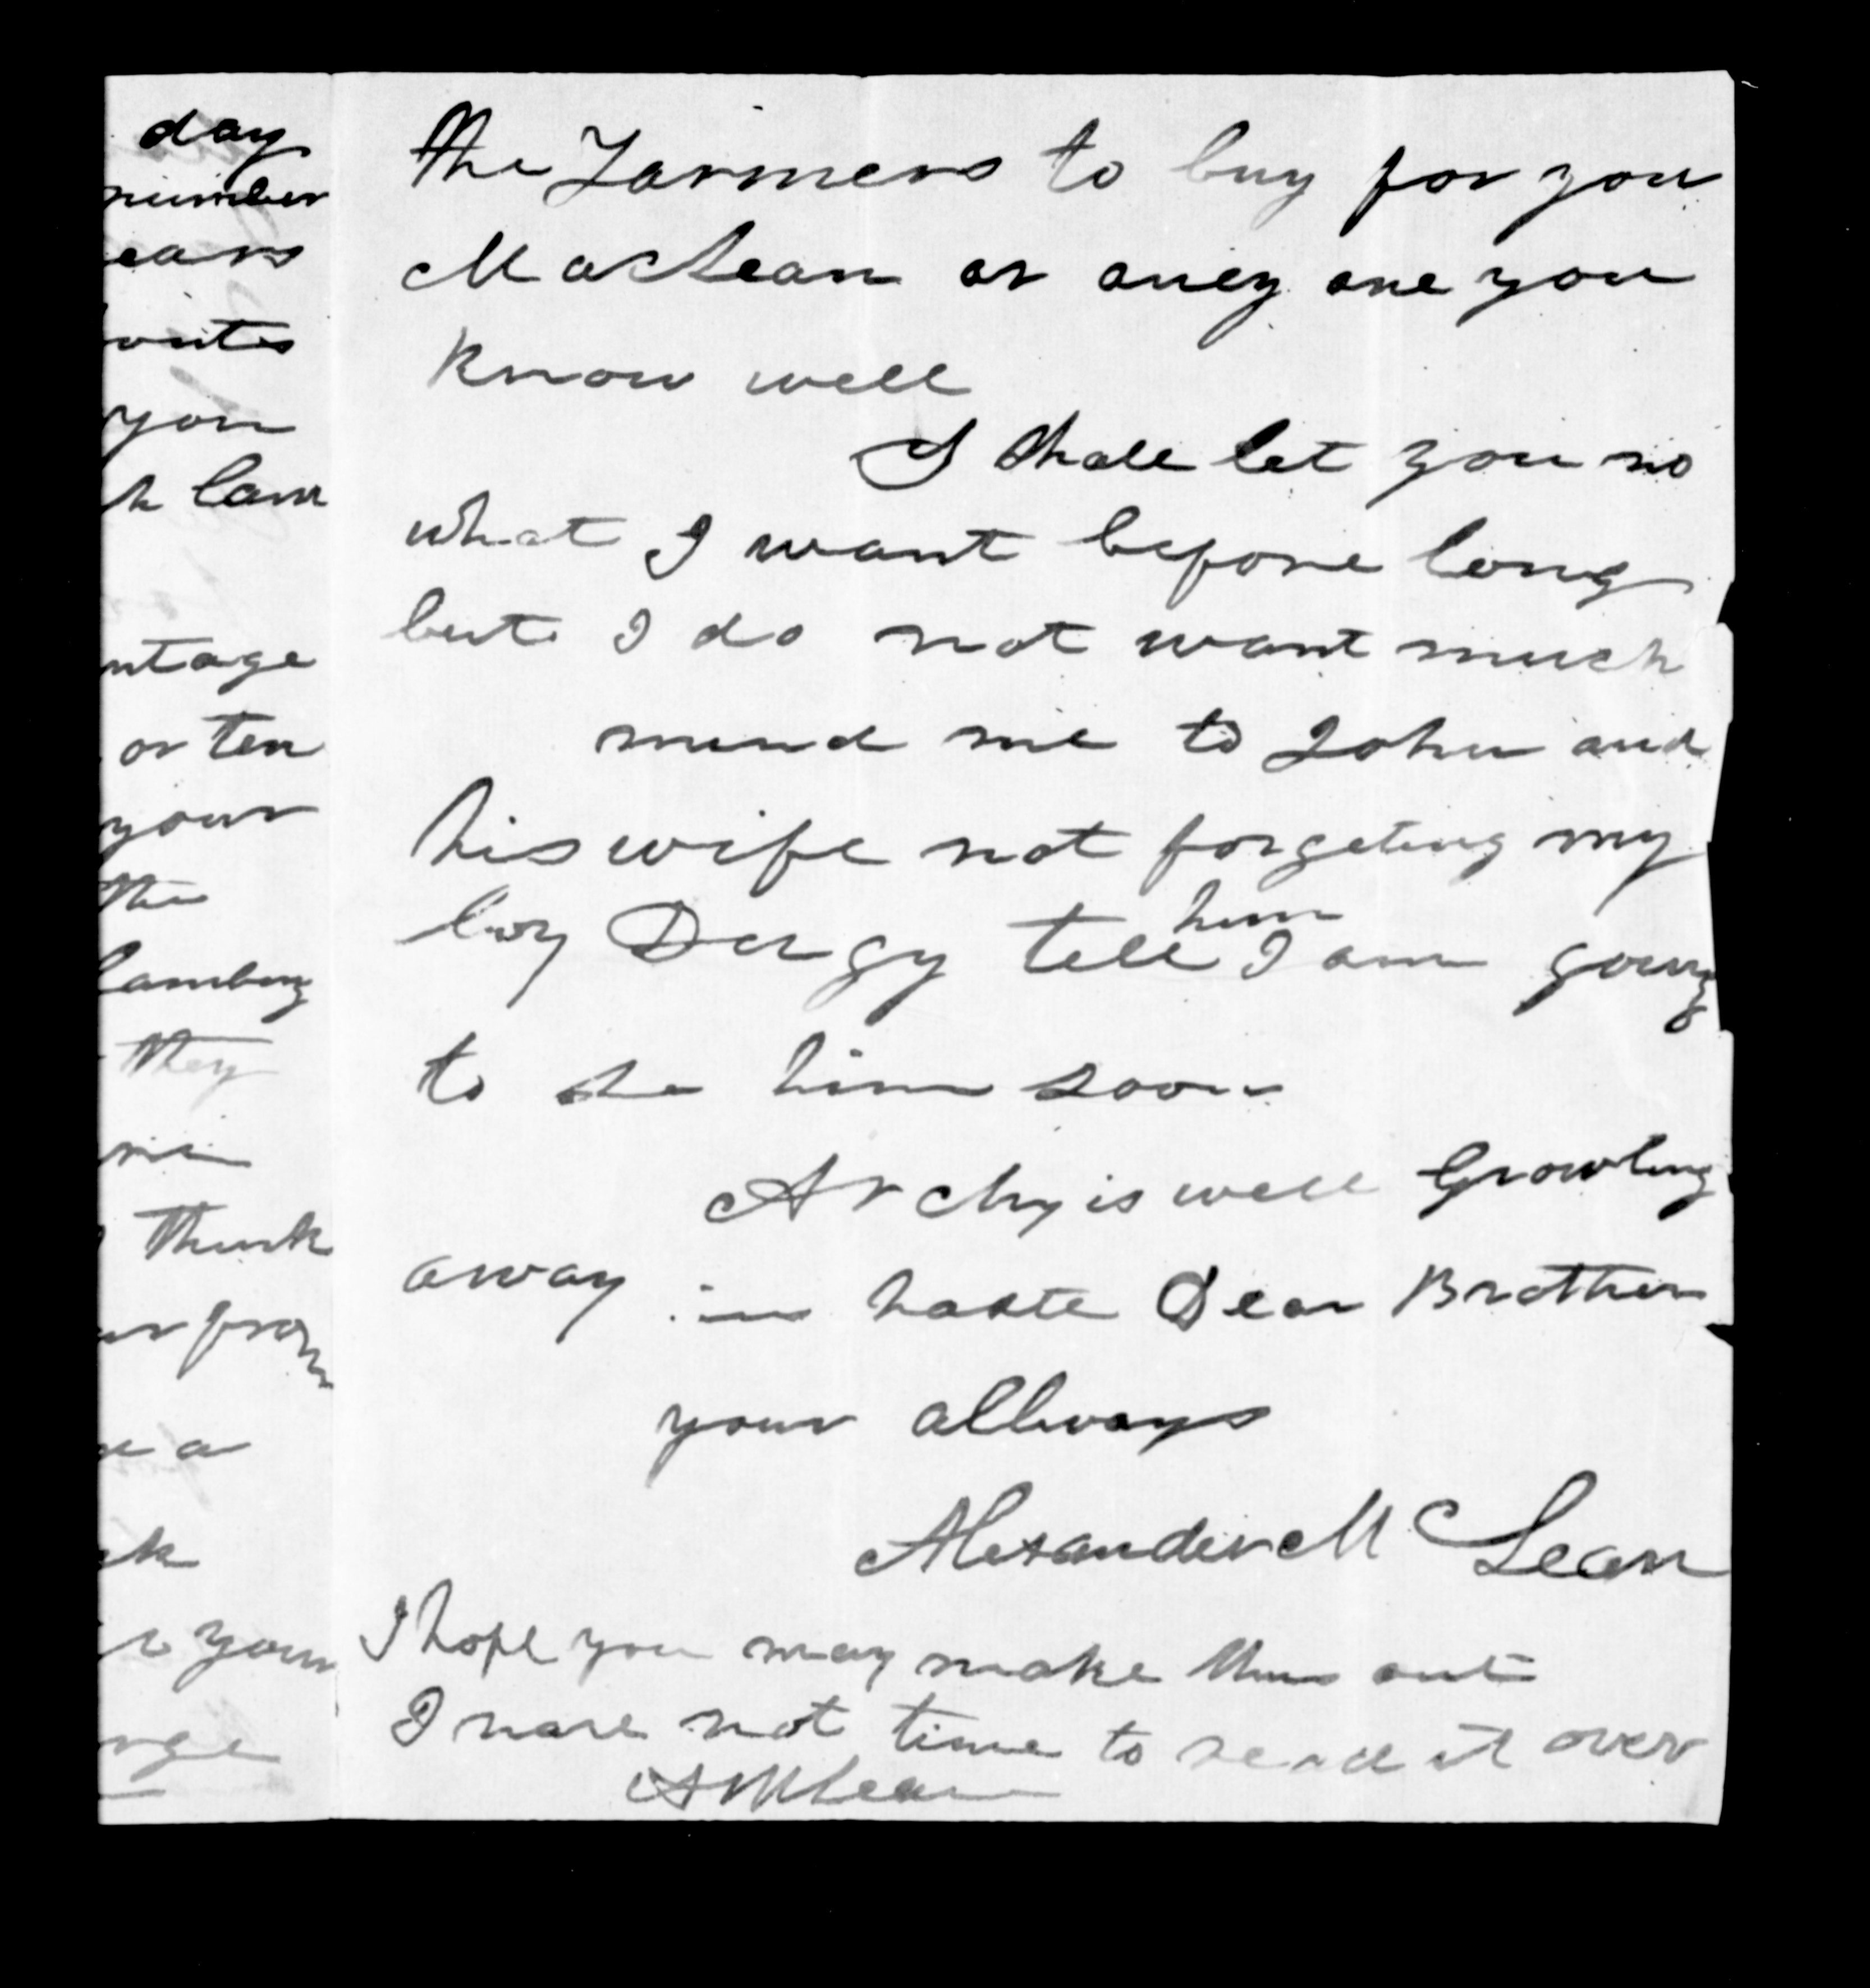 day
number
ears
you
h lam
ntage
or ten
your
the
lambing
they
think
from
a
your
rge
the Farmers to buy for you
MacLean or aney one you
know well
I shall let you no
what I want before long
but I do not want much
mind me to John and
his wife not forgeting my
boy Dugy tell him I am going
to se him soon
Archy is well Growling
away in haste Dear Brother
your allways
Alexander McLean
I hope you may make this out
I have not time to read it over
A McLean